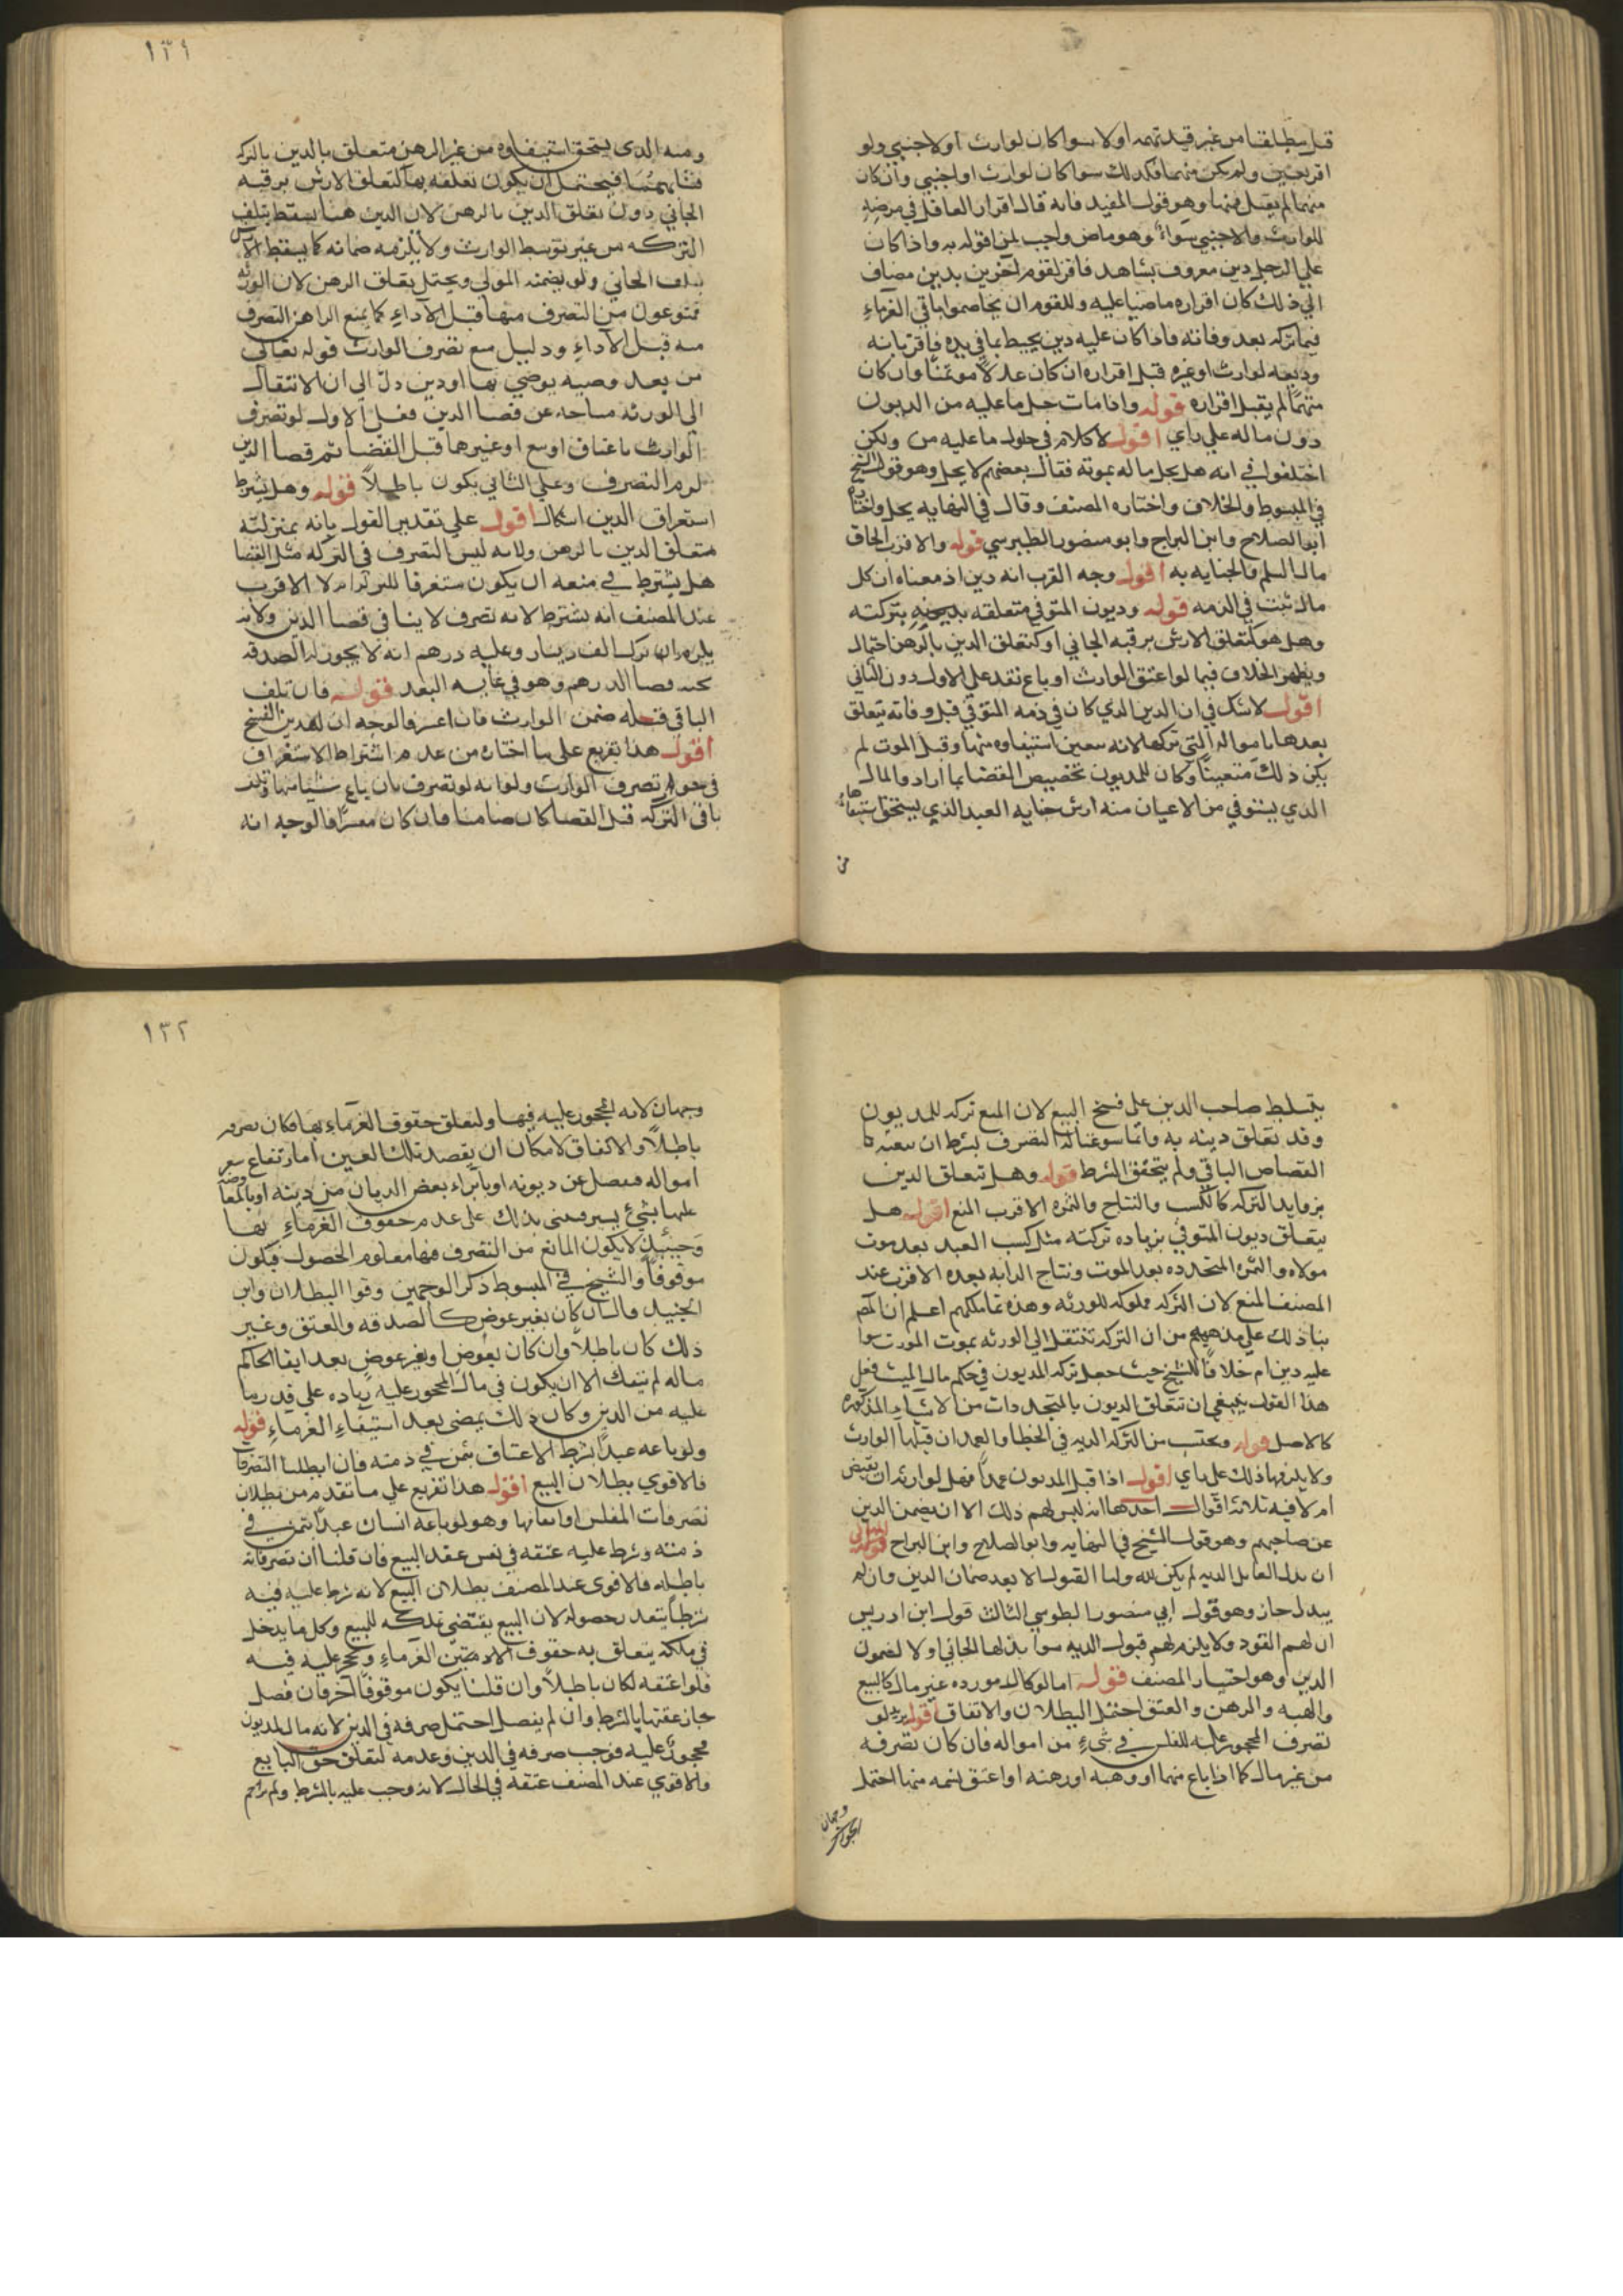 قبل مطلقا من غير قيد تهمه اولا سوا كان لوارث او لاجنبي ولو
اقر بعين ولم يكن متهما فكذلك سوا كان لوارث او اجنبي وان كان
متهما لم يقبل وهو قول المفيد فانه قال اقرار العاقل في مرضه
للوارث والاجنبي سواء وهو ماض واجب لمن اقر له به واذا كان
علي الرجل دين معروف بشاهد فاقر لقوم اخرين بدين مضاف
الي ذلك كان اقراره ماضيا عليه وللقوم ان يخاصموا باقي الغرماء
فيما تركه بعد وفاته فاذا كان عليه دين يحيط بما في يده فاقر بانه
وديعه لوارث او غيره قبل اقراره ان كان عدلا مومنا وان كان
متهما لم يقبل اقراره قوله واذا مات حل ما عليه من الديون
دون ماله علي راي اقول لا كلام في حلول ما عليه من ولكن
اختلفوا في انه هل يحل ماله بموته فقال بعضهم لا يحل وهو قول الشيخ
في المبسوط والخلاف واختاره المصنف وقال في النهايه يحل واختاره
ابو الصلاح وابن البراج وابو منصور الطبرسي قوله والاقرب الحاق
مال السلم والجنايه به اقول وجه القرب انه دين اذ معناه ان كل
مال ثبت في الذمه قوله وديون المتوفي متعلقه بتركته
وهل هو كتعلق الارش برقبه الجاني او كتعلق الدين بالرهن احتمال
ويظهر الخلاف فيما لو اعتق الوارث او باع نفذ علي الاول دون الثاني
اقول لا شك في ان الدين الذي كان في ذمه المتوفي قبل وفاته يتعلق
بعدها بامواله التي تركها لانه يتعين استيفاوه منها وقبل الموت لم
يكن ذلك متعينا وكان للمديون تخصيص القضا بما اراد والمال
الذي يستوفي من الاعيان منه ارش جنايه العبد الذي يستحق استيفاءها
من
١٣١
ومنه الذي يستحق استيفاوه من غير الرهن متعلق بالدين بالتركه
فيحتمل ان يكون تعلقه بها كتعلق الارش برقبه
الجاني دون تعلق الدين بالرهن لان الدين هنا يسقط بتلف
التركه من غير توسط الوارث ولا يلزمه ضمانه كما يسقط الارش
بتلف الجاني ولو يضمنه المولي ويحتمل تعلق الرهن لان الورثه
ممنوعون من التصرف منها قبل الاداء كما يمنع الراهن التصرف
منه قبل الاداء ودليل منع تصرف الوارث قوله تعالي
من بعد وصيه يوصي بها او دين دل الي ان الانتقال
الي الورثه متاخر عن قضا الدين فعلي الاول لو تصرف
الوارث باعتاق او بيع او غيرهما قبل القضا ثم قضا الدين
لزم التصرف وعلي الثاني يكون باطلا قوله وهل يشترط
استغراق الدين اشكال اقول علي تقدير القول بانه بمنزلته
متعلق الدين بالرهن ولانه ليس التصرف في التركه مثل القضا
هل يشترط في منعه ان يكون مستغرقا للتركه ام لا الاقرب
عند المصنف انه يشترط لانه تصرف لا ينافي قضا الدين ولانه
يلزم ان ترك الف دينار وعليه درهم انه لا يجوز له الصدقه
قضا الدرهم وهو في غايه البعد قوله فان تلف
الباقي قبله ضمن الوارث فان اعسر فالوجه ان للمدين الفسخ
اقول هذا تفريع علي ما اختاره من عدم اشتراط الاستغراق
في جواز تصرف الوارث ولو انه لو تصرف بان باع شيا منها وتلف
باقي التركه قبل القضا كان ضامنا فان كان معسرا فالوجه انه
يتسلط صاحب الدين على فسخ البيع لان المبيع تركه للمديون
وقد تعلق دينه به وانما سوغنا له التصرف بشرط ان
القضاص الباقي ولم يتحقق الشرط قوله وهل يتعلق الدين
بزوايد التركه كالكسب والنتاج والثمره الاقرب المنع اقول هل
يتعلق ديون المتوفي بزياده تركته مثل كسب العبد بعد موت
مولاه والثمره المتجدده بعد الموت ونتاج الدابه بعده الاقرب عند
المصنف المنع لان التركه مملوكه للورثه وهذه نما ملكهم اعلم ان المصـ
بنا ذلك علي مذهبهم من ان التركه تنتقل الي الورثه بموت المورث سوا
عليه دين ام خلافا للشيخ حيث جعل تركه المديون في حكم مال الميت فعلي
هذا القول ينبغي ان تتعلق الديون بالمتجددات من الاشياء المذكوره
كالاصل قوله ويحتسب من التركه الديه في الخطا والعمد ان قبلها الوارث
ولا يلزمها ذلك علي راي اقول اذا قتل المديون عمدا فهل لوارثه ان يقبض
ام لا فيه ثلاثه اقوال احدها انه ليس لهم ذلك الا ان يضمن الدين
عن صاحبهم وهو قول الشيخ في النهايه وابو الصلاح وابن البراج الثاني
ان بذل القاتل الديه لم يكن للورثه القول الا بعد ضمان الدين وان لم
يبذل جاز وهو قول ابي منصور الطوسي الثالث قول ابن ادريس
ان لهم القود ولا يلزمهم قبول الديه سوا بذلها الجاني اولا
الدين وهو اختيار المصنف قوله اما لو كان مورده غير مال كالبيع
والهبه والرهن والعتق احتمل البطلان والاتفاق اقول يريد لو
تصرف المحجور عليه للفلس في شيء من امواله فان كان تصرفه
من غير مال كما اذا باع منها او وهبه او رهنه او اعتق امه منها احتمل
وجهان
١٣٢
وجهان لانه محجور عليه فيها ولتعلق حقوق الغرماء بها فكان تصرفه
باطلا والاتفاق لامكان ان يقصد تلك العين اما ارتفاع سعر
امواله فيفضل عن ديونه او بابراء بعض الديان من دينه او بالمعاوضه
عليها بشيء يسير فيعني بذلك على عدم حقوق الغرماء بها
وحينئذ لا يكون المانع من التصرف فيها معلوم الحصول فيكون
موقوفا والشيخ في المبسوط ذكر الوجهين وقوا البطلان وابن
الجنيد قال ان كان بغير عوض كالصدقه والعتق وغير
ذلك كان باطلا وان كان بعوض او بغير عوض بعد ايقا الحاكم
ماله لم ينفك الا ان يكون في مال المحجور عليه زياده علي قدر ما
عليه من الدين وكان ذلك يمضي بعد استيفاء الغرماء قوله
ولو باعه عبدا بشرط الاعتاق بثمن في ذمته فان ابطلنا التصرفات
فالاقوي بطلان البيع اقول هذا تفريع علي ما تقدم من بطلان
تصرفات المفلس او ايقافها وهو لو باعه انسان عبدا بثمن في
ذمته وشرط عليه عتقه في نفس عقد البيع فان قلنا ان تصرفاته
باطله فالاقوى عند المصنف بطلان البيع لانه شرط عليه فيه
شرطا يتعذر حصوله لان البيع يقتضي تملكه للمبيع وكل ما يدخل
في ملكه يتعلق به حقوق الغرماء وتحجر عليه فيه
فلو اعتقه لكان باطلا وان قلنا يكون موقوفا اخر فان فضل
جاز عتقها بالشرط وان لم يفضل احتمل صرفه في الدين لانه مال للمديون
محجور عليه فوجب صرفه في الدين وعدمه لتعلق حق البايع
والاقوي عند المصنف عتقه في الحال لانه وجب عليه بالشرط ولم